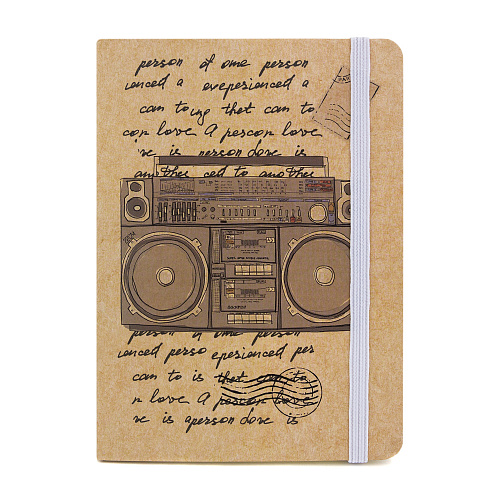 person of one person
ienced a eveperienced a
can to ing that can to
con love A pescon love
're is person dove is
another ced to another
person of one person
ienced perso eperienced per
can to is that can to
n love A pescon love
're is aperson dove is